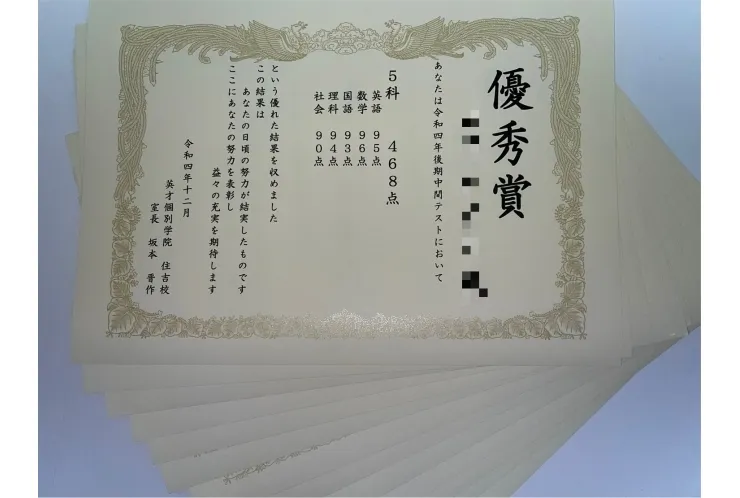 優秀賞
あなたは令和四年後期中間テストにおいて
5科 468点
英語 95点
数学 96点
国語 93点
理科 94点
社会 90点
という優れた結果を収めました
この結果は
あなたの日頃の努力が結実したものです
ここにあなたの努力を表彰し
益々の充実を期待します
令和四年十二月
英才個別学院 住吉校
室長 坂本 晋作